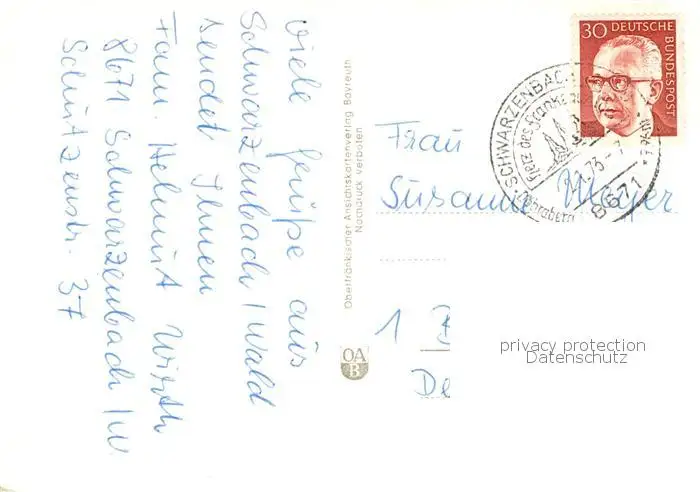 Viele Grüße aus
Schwarzenbach/Wald
sendet Ihnen
Fam. Helmut Wirth
8671 Schwarzenbach/W.
Schützenstr. 37
Oberfränkischer Ansichtskartenverlag Bayreuth
Nachdruck verboten
OA
B
30 DEUTSCHE
BUNDESPOST
SCHWARZENBACH
Herz des Franken
73
8671
Frau
Susanne Meyer
1
privacy protection
Datenschutz